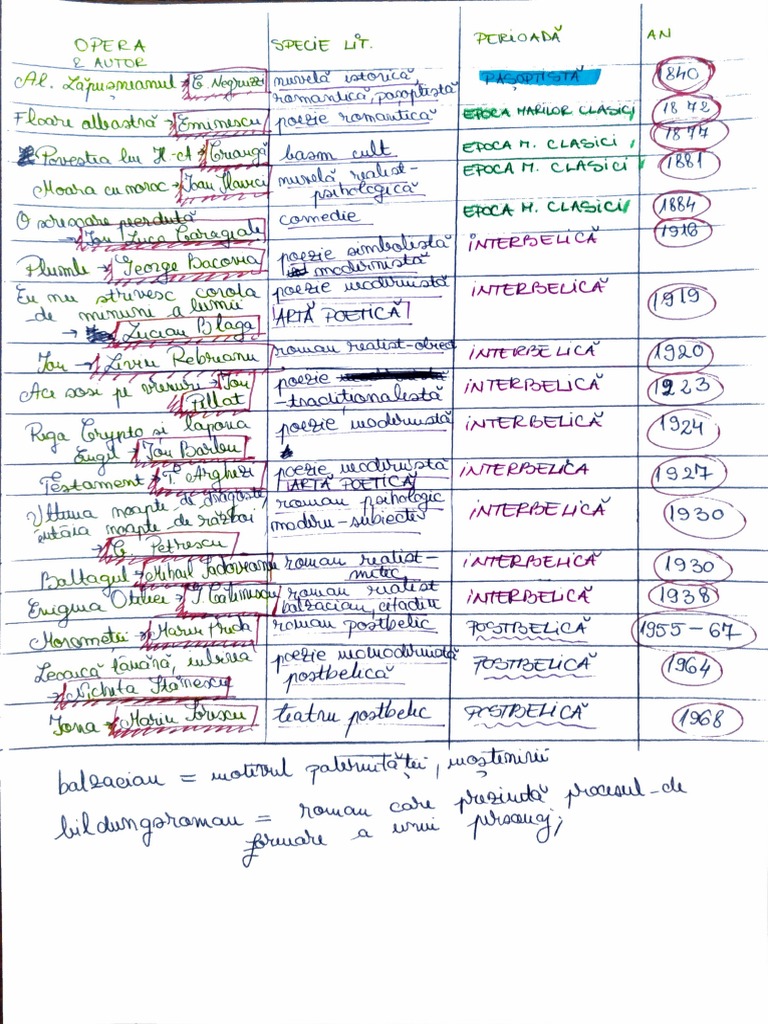 OPERA & AUTOR | SPECIE LIT. | PERIOADĂ | AN
Al. Lăpușneanul → C. Negruzzi | nuvelă istorică, romantică, pașoptistă | PAȘOPTISTĂ | 1840
Floare albastră → Eminescu | poezie romantică | EPOCA MARILOR CLASICI | 1872
Povestia lui H-A → Creangă | basm cult | EPOCA M. CLASICI | 1877
Moara cu noroc → Ioan Slavici | nuvelă realist-psihologică | EPOCA M. CLASICI | 1881
O scrisoare pierdută → Ion Luca Caragiale | comedie | EPOCA M. CLASICI | 1884
Plumb → George Bacovia | poezie simbolistă modernistă | INTERBELICĂ | 1916
Eu nu strivesc corola de minuni a lumii → Lucian Blaga | poezie modernistă ARTĂ POETICĂ | INTERBELICĂ | 1919
Ion → Liviu Rebreanu | roman realist-obiect | INTERBELICĂ | 1920
Aci sosi pe vremuri → Ion Pillat | poezie -tradiționalistă | INTERBELICĂ | 1923
Riga Crypto și lapona Enigel → Ion Barbu | poezie modernistă | INTERBELICĂ | 1924
Testament → T. Arghezi | poezie modernistă ARTĂ POETICĂ | INTERBELICĂ | 1927
Ultima noapte de dragoste, întâia noapte de război → C. Petrescu | roman psihologic modern-subiectiv | INTERBELICĂ | 1930
Baltagul → Mihail Sadoveanu | roman realist-mitic | INTERBELICĂ | 1930
Enigma Otiliei → G. Călinescu | roman realist balzacian, citadin | INTERBELICĂ | 1938
Moromeții → Marin Preda | roman postbelic | POSTBELICĂ | 1955-67
Leoaică tânără, iubirea → Nichita Stănescu | poezie neomodernistă postbelică | POSTBELICĂ | 1964
Iona → Marin Sorescu | teatru postbelic | POSTBELICĂ | 1968
balzacian = motivul paternității, moștenirii
bildungsroman = roman care prezintă procesul de
formare a unui personaj;